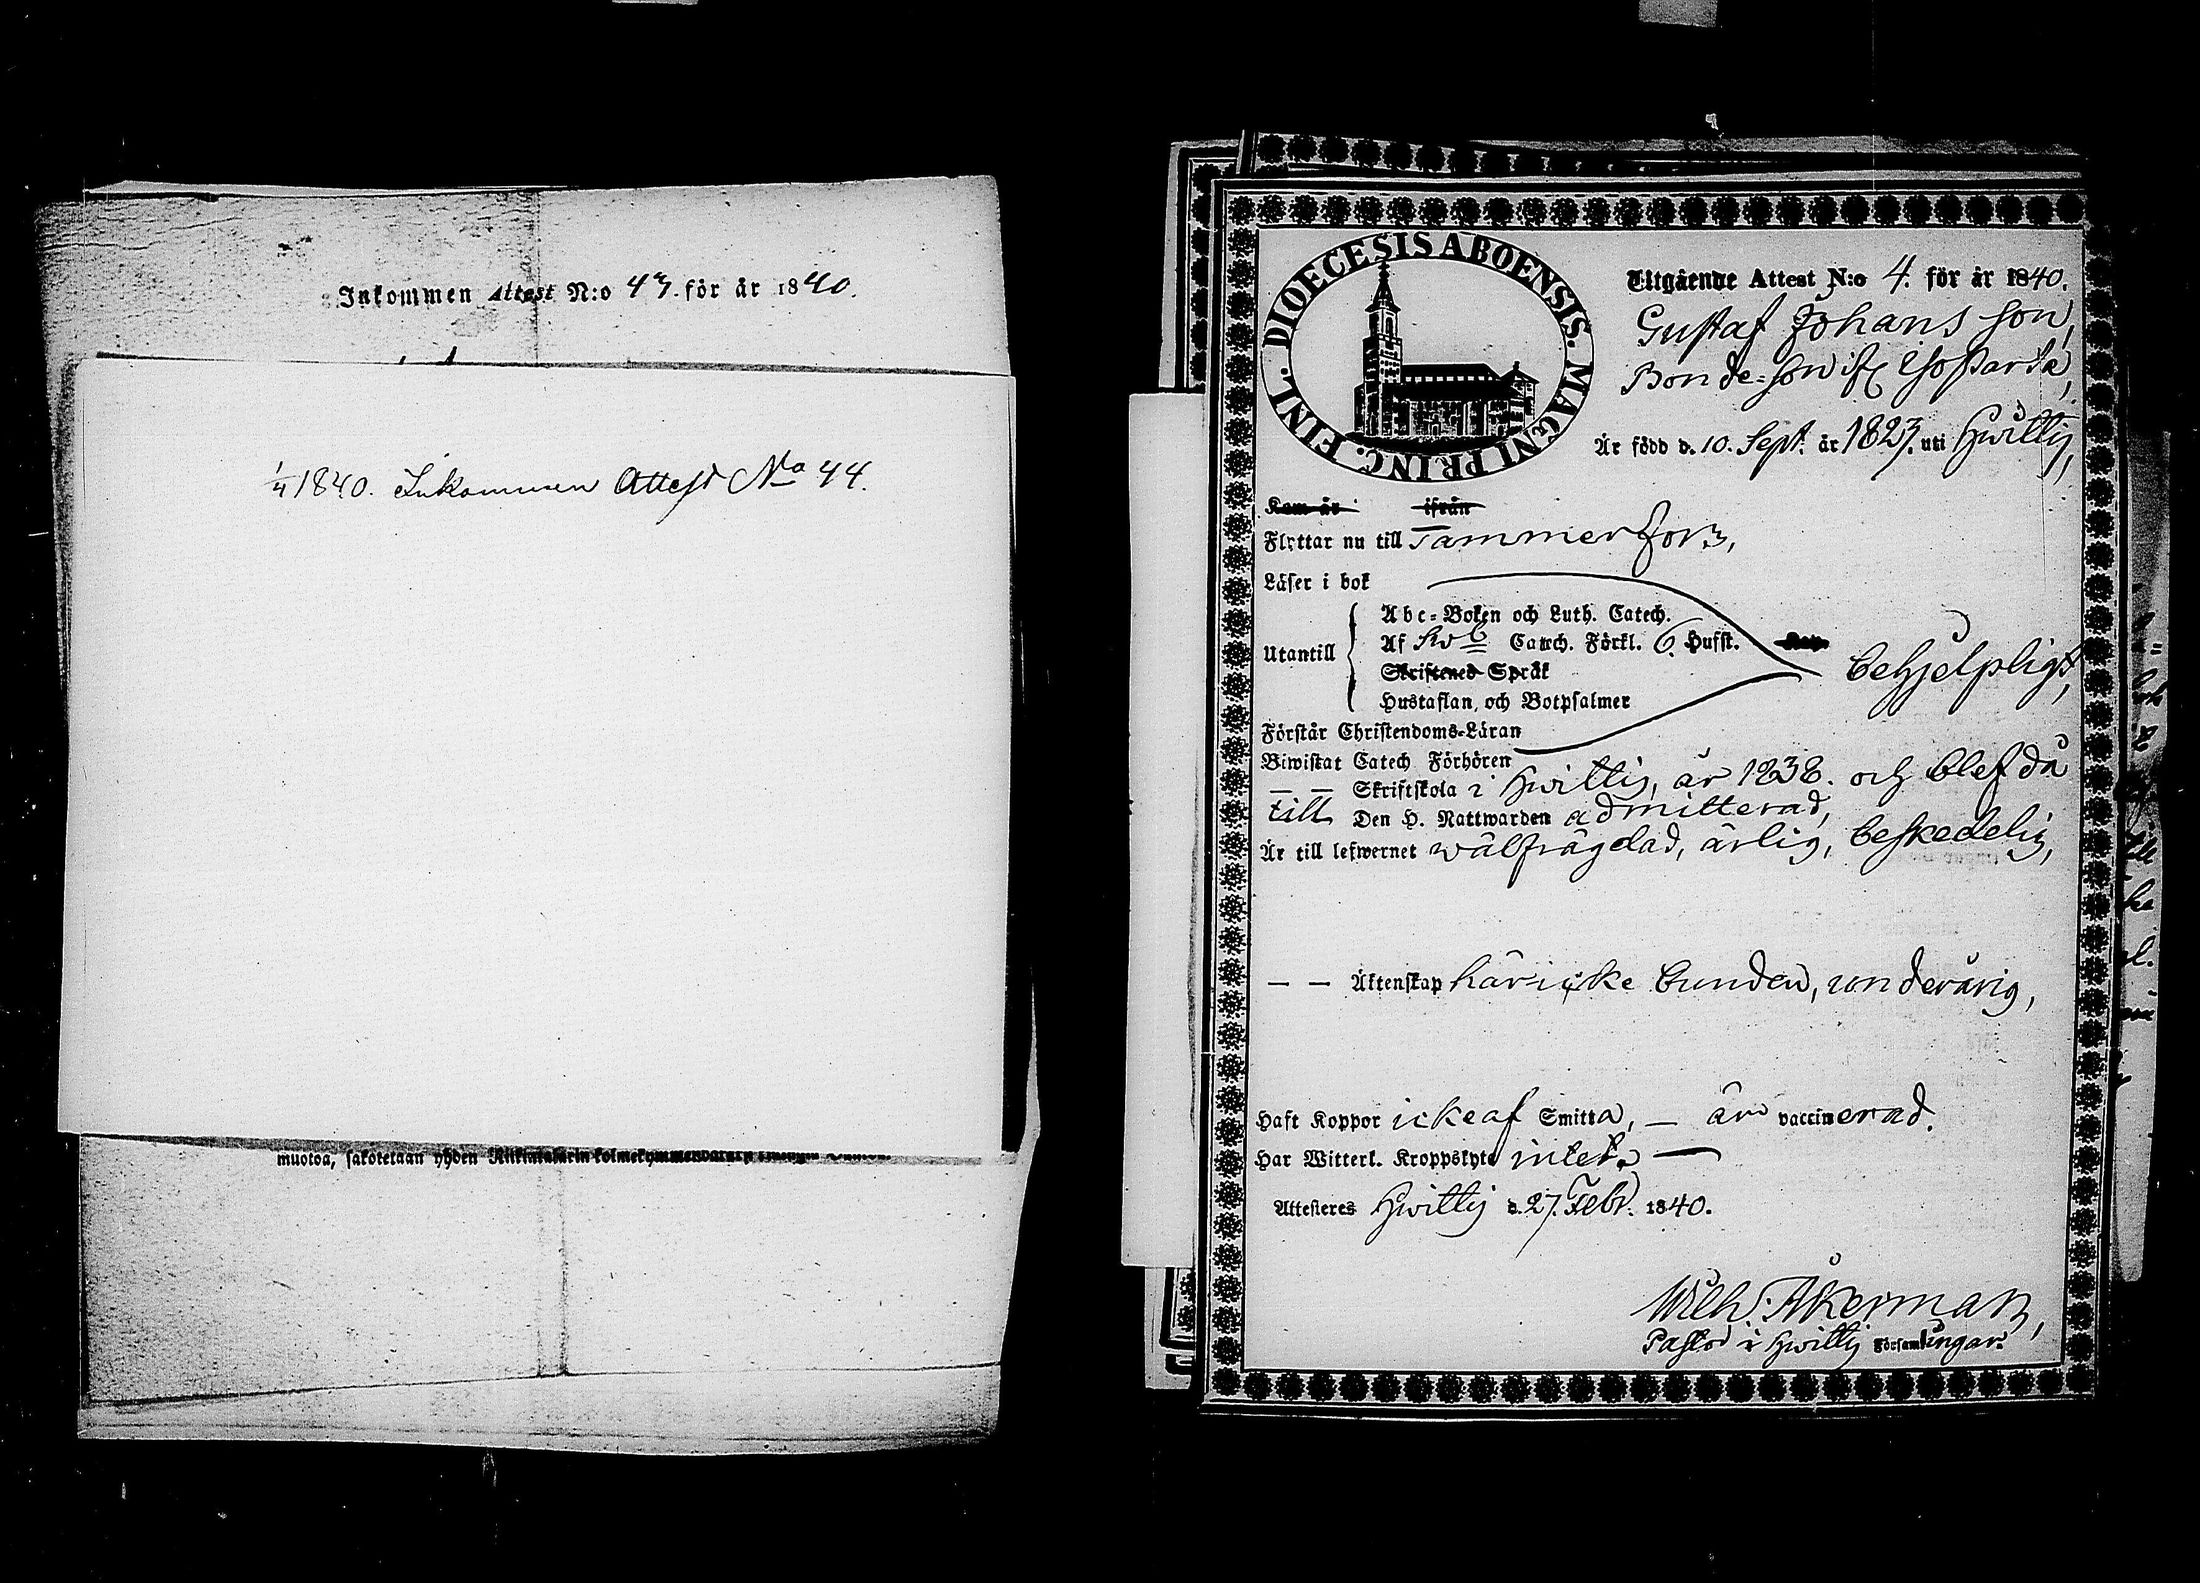 Inkommen Attest N:o 43. för år 1840.
1/4 1840. Inkommen Attest No 44.
muotoa, sakotetaan yhden
DIOECESIS ABOENSIS. MAGNI PRINC. FINL.
Utgående Attest N:o 4. för år 1840.
Gustaf Johans son,
Bonde-son ifr.
Är född d. 10. Sept. år 1823. uti Hwittis,
Kom år ifrån
Flyttar nu till Tammerfors,
Läser i bok
Abc-Boken och Luth. Catech.
Utantill Af Sv Catech. Förkl. 6. Hufst.
Skriftenes Språk
behjelpligt,
Hustaflan, och Botpsalmer
Förstår Christendoms-Läran
Biwistat Catech Förhören
— — Skriftskola i Hwittis, år 1838. och blef då
till Den H. Nattwarden admitterad,
Är till lefwernet wälfrägdad, ärlig, beskedelig,
— — Äktenskap här icke bunden, underårig,
Haft Koppor icke af Smitta, — är vaccinerad.
Har Witterl. Kroppslyte intet. —
Attesteres Hwittis d. 27. Febr. 1840.
Wilh. Åkerman,
Pastor i Hwittis Församlingar.